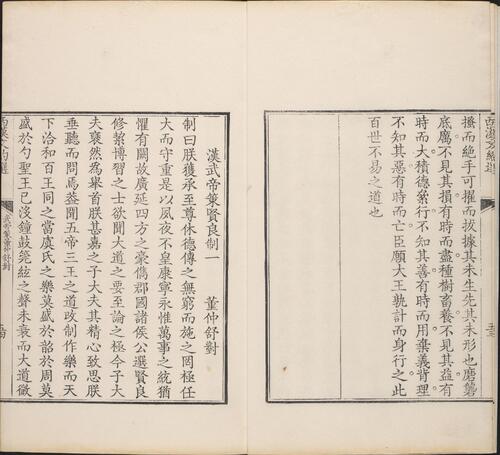 西漢文約選
搔而絕手可擢而拔據其未生先其未形也磨礱
底厲不見其損有時而盡種樹畜養不見其益有
時而大積德絫行不知其善有時而用棄義背理
不知其惡有時而亡臣願大王孰計而身行之此
百世不易之道也
漢武帝策賢良制一 董仲舒對
制曰朕獲承至尊休德傳之無窮而施之罔極任
大而守重是以夙夜不皇康寧永惟萬事之統猶
懼有闕故廣延四方之豪儁郡國諸侯公選賢良
修絜博習之士欲聞大道之要至論之極今子大
夫褎然為舉首朕甚嘉之子大夫其精心致思朕
垂聽而問焉蓋聞五帝三王之道改制作樂而天
下洽和百王同之當虞氏之樂莫盛於韶於周莫
盛於勺聖王已沒鐘鼓筦絃之聲未衰而大道微
西漢文約選
武帝策董仲舒對